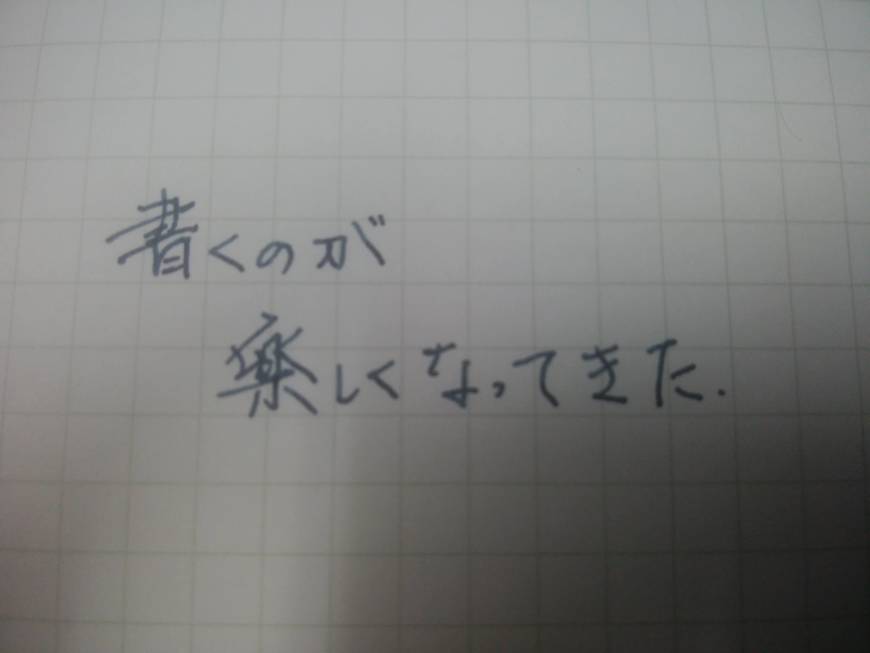 書くのが
楽しくなってきた.